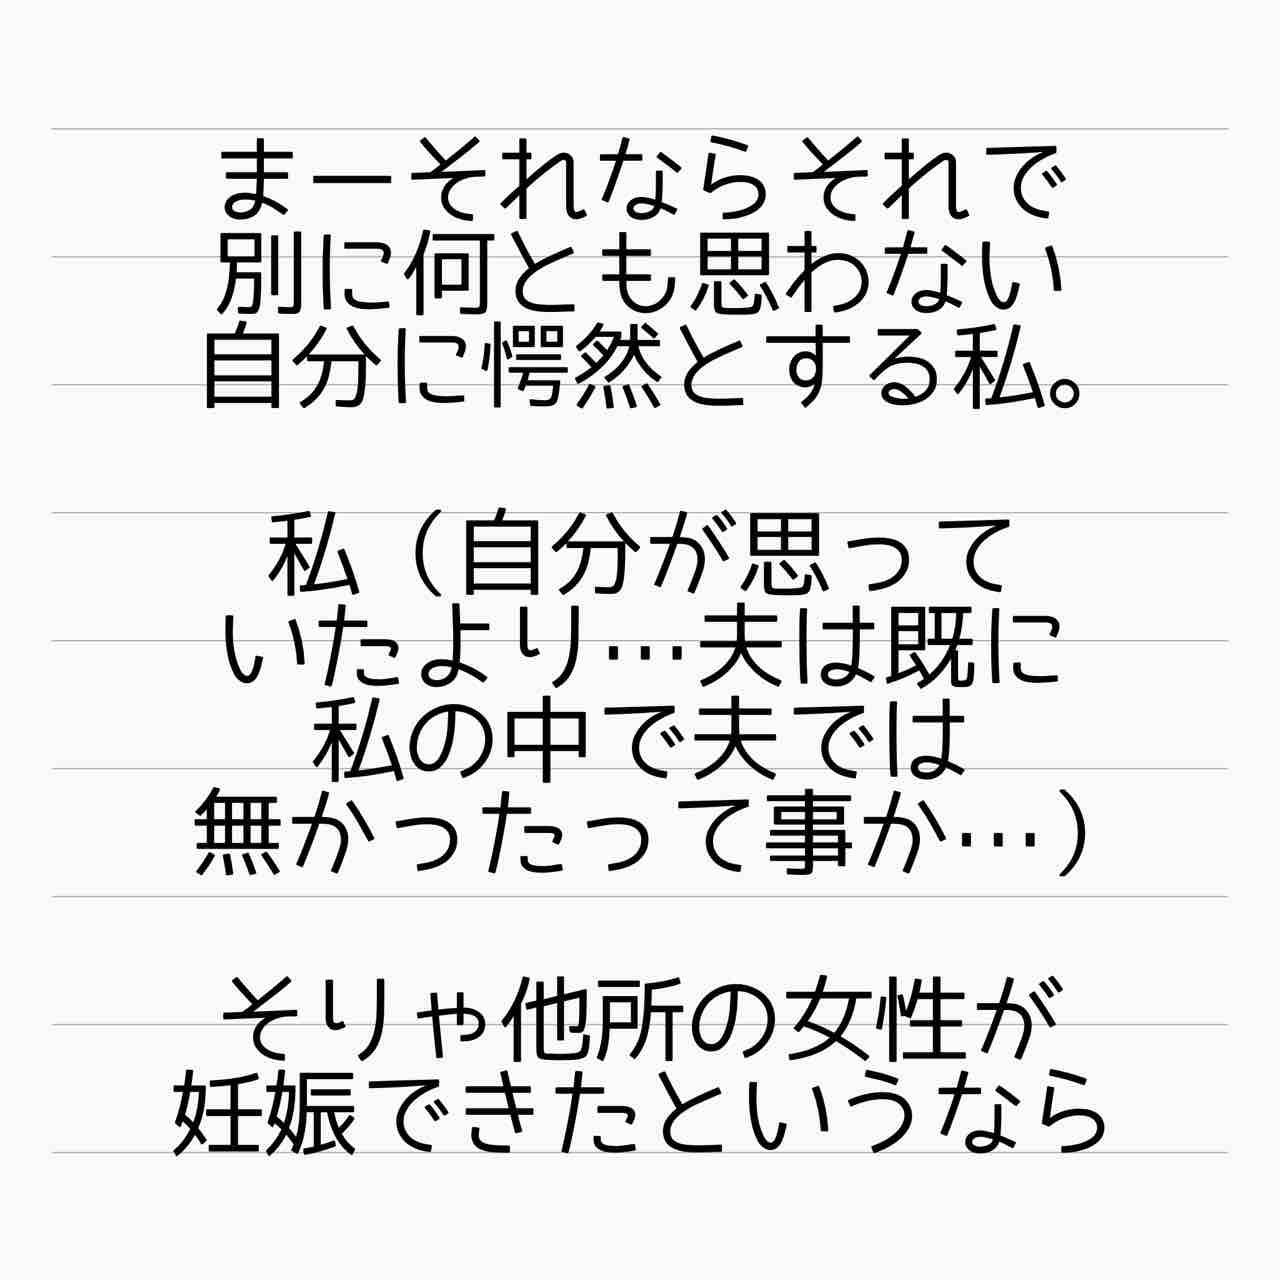 まーそれならそれで
別に何とも思わない
自分に愕然とする私。
私（自分が思って
いたより…夫は既に
私の中で夫では
無かったって事か…）
そりゃ他所の女性が
妊娠できたというなら